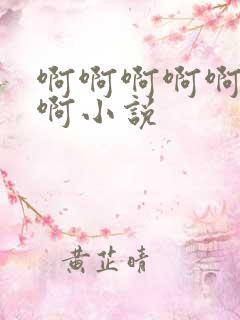 啊啊啊啊啊
啊小说
黄芷晴